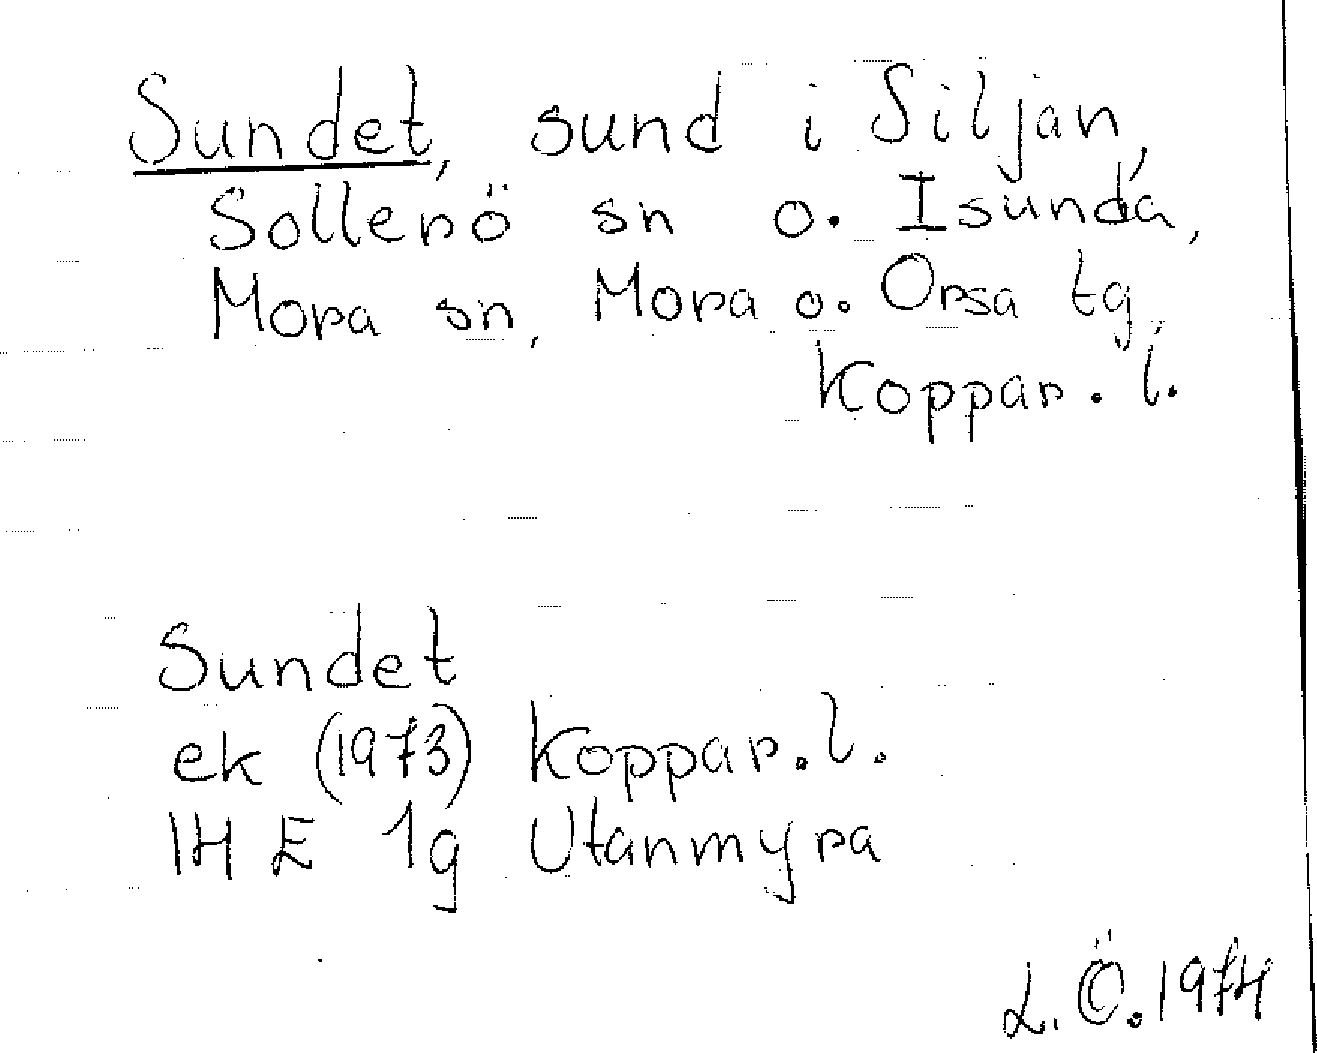 Sundet, sund i Siljan,
Sollerö sn o. Isunda,
Mora sn, Mora o. Orsa tg,
Koppar. l.
Sundet
ek (1973) Koppar. l.
14 E 1g Utanmyra
L. Ö. 1974